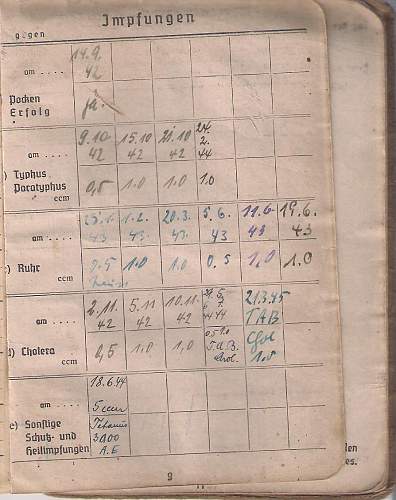 Impfungen
gegen
14.9.
am .... 42
Pocken
Erfolg ja.
9.10. 15.10 21.10 24.
2.
am .... 42 42 42 44
) Typhus
Paratyphus 0,5 1.0 1.0 1.0
ccm
1.2. 20.3. 5.6. 11.6. 19.6.
am .... 43 43. 43 43 43 43
) Ruhr 0.5 1.0 1.0 0.5 1,0 1.0
ccm
2.11. 5.11 10.11. 21.3.45
am .... 42 42 42 44 TAB
) Cholera 0,5 1.0 1,0 T.A.B. Chol
ccm Chol. 1.0
18.6.44
am .... 5 ccm
e) Sonstige Tetanus
Schutz- und 3000
Heilimpfungen A.E
9
den
es.